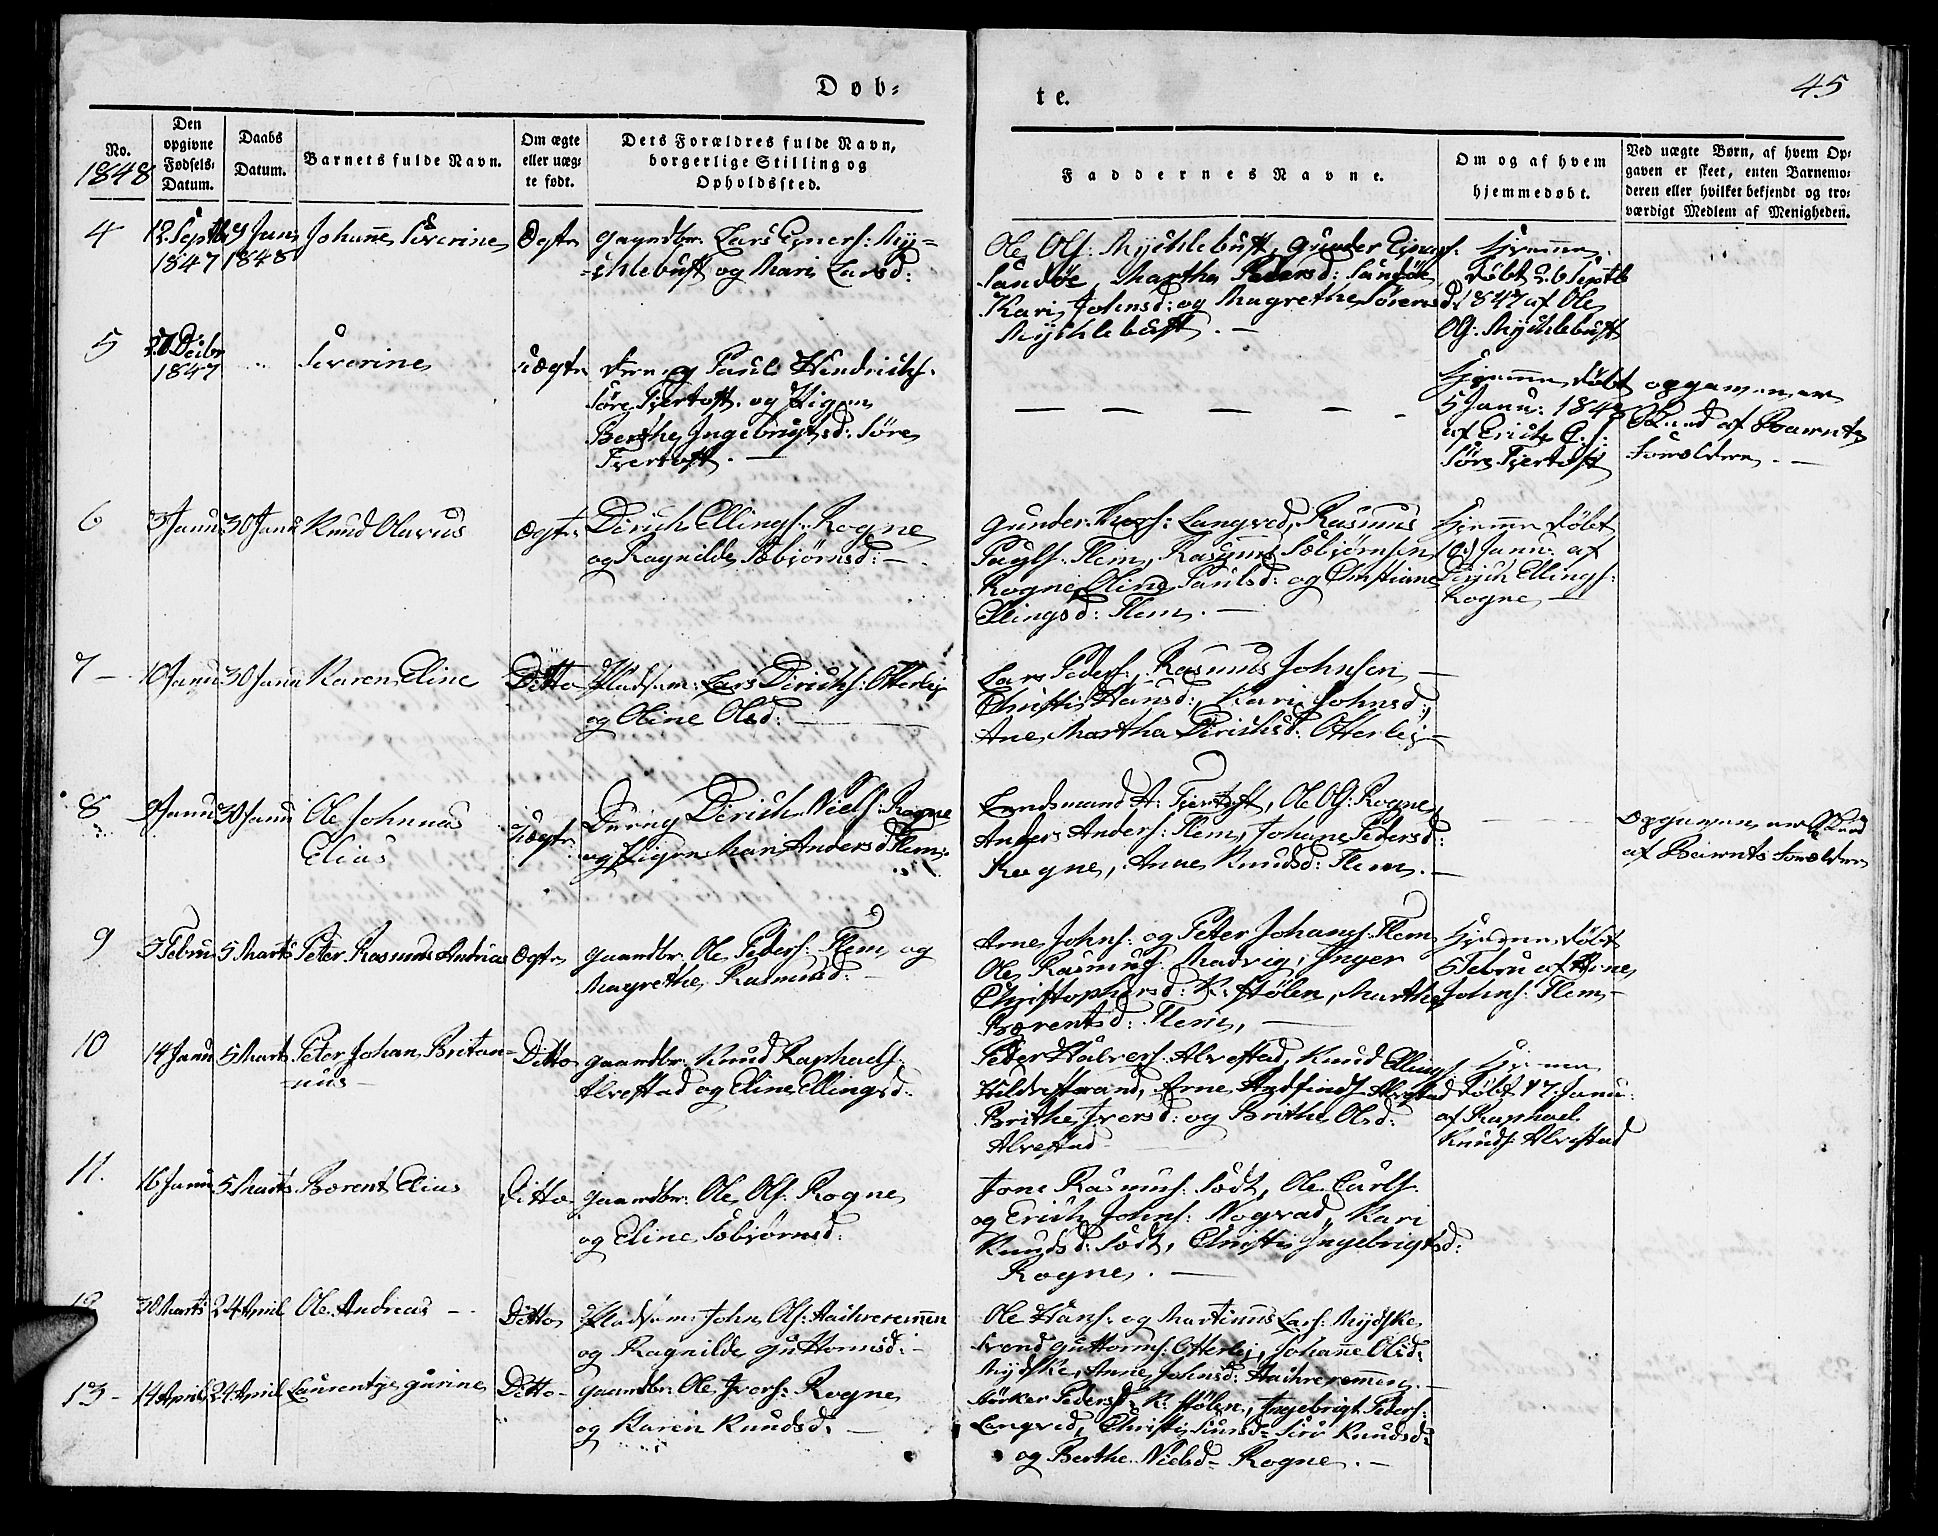 Døb-
te.
45
No.
1848
Den
opgivne
Fødsels-
Datum.
Daabs
Datum.
Barnets fulde Navn.
Om ægte
eller uæg-
te født.
Dets Forældres fulde Navn,
borgerlige Stilling og
Opholdssted.
Faddernes Navne.
Om og af hvem
hjemmedøbt.
Ved uægte Børn, af hvem Op-
gaven er skeet, enten Barnemo-
deren eller hvilket bekjendt og tro-
værdigt Medlem af Menigheden.
4
12 Septbr
1847
9 Janu
1848
Johanne Severine
Ægte
Gaardbr. Lars Ejners: My-
-chlebust og Mari Larsd:
Ole Ols: Mychlebust, Gunder Einars:
Sandøe, Martha Pedersd: Sandøe
Kari Johnsd: og Magrethe Sørensd:
Mychlebust. —
Hjemme-
døbt 26 Septbr
1847 af Ole
Ols: Mychlebust
5
27 Decbr
1847
Severine
Uægte
Dreng Paul Hendrichs:
Søre Tjertoft og Pigen
Berthe Ingebrigtsd: Søre
Tjertoft. —
— — — — -
Hjemmedøbt
5 Janu: 1848
af Erich E. S:
Søre Tjertoft
Opgaven er
skeed af Barnets
Forældre. —
6
3 Janu
30 Janu
Knud Olavus
Ægte
Dirich Ellings: Rogne
og Ragnilde Sæbjørnsd: —
Gunder Knuds: Langved, Rasmus
Pauls: Flem, Rasmus Sæbjørnsen
Rogne, Eline Paulsd: og Christiane
Ellingsd: Flem. —
Hjemmedøbt
Janu: af
Dirich Ellings:
Rogne —
7 —
10 Janu
30 Janu
Karen Eline
Ditto
Pladsm: Lars Dirichs: Otterlej
og Oline Olsd: —
Lars Peders:, Rasmus Johnsen —
Christi Hansd:, Kari Johnsd:,
Ane Martha Dirichsd: Otterlej —
8
9 Janu
30 Janu
Ole Johnnas
Elias
Uægte
Dreng Dirich Niels: Rogne
og Pigen Mari Andersd Flem.
Lendsmand A: Tjertoft, Ole Ols: Rogne,
Anders Anders: Flem, Johane Pedersd:
Rogne, Anne Knudsd: Flem. —
Opgaven er skeed
af Barnets Forældre
9
3 Febru
5 Marts
Peter Rasmus Andreas
Ægte
Gaardbr. Ole Peders: Flem og
Magrethe Rasmusd: —
Arne Johns: og Peter Johans: Flem
Ole Rasmus: Madvig, Inger
Christophersd: K: Stølen, Marthe
Bærentsd: Flem, —
Hjemmedøbt
5 Febru af Arne
Johns: Flem —
10
14 Janu
5 Marts
Peter Johan Britan-
nus —
Ditto
Gaardbr. Knud Raphaels:
Alvestad og Eline Ellingsd:
Peder Halvers: Alvestad, Knud Ellings:
Hildrestrand, Arne Andfinds: Alvestad
Brithe Iversd: og Brithe Olsd:
Alvestad
Hjemme
døbt 17 Janu:
af Raphael
Knuds: Alvestad
11.
16 Janu
5 Marts
Bærent Elias
Ditto
Gaardbr. Ole Ols: Rogne
og Eline Sæbjørnsd:
Jone Rasmus: Sødt, Ole Carls:
og Erich Johns: Nogvad, Kari
Knudsd: Sødt, Christi Ingebrigtsd:
Rogne. —
12
30 Marts
24 April
Ole Andreas —
Ditto
Pladsm: John Ols: Haihreremmen
og Ragnilde Guttormsd: —
Ole Hans: og Martinus Lars: Mydske
Svend Guttorms: Otterlej, Johanne Olsd:
Mydske, Anne Johnsd: Haihreremmen. —
13 —
14 April
24 April
Laurentze Gurine
Ditto —
Gaardbr. Ole Ivers: Rogne
og Karen Knudsd: —
Størker Peders: K: Stølen, Ingebrigt Peders:
Langved, Christi Knudsd:
og Berthe Nielsd — Rogne. —